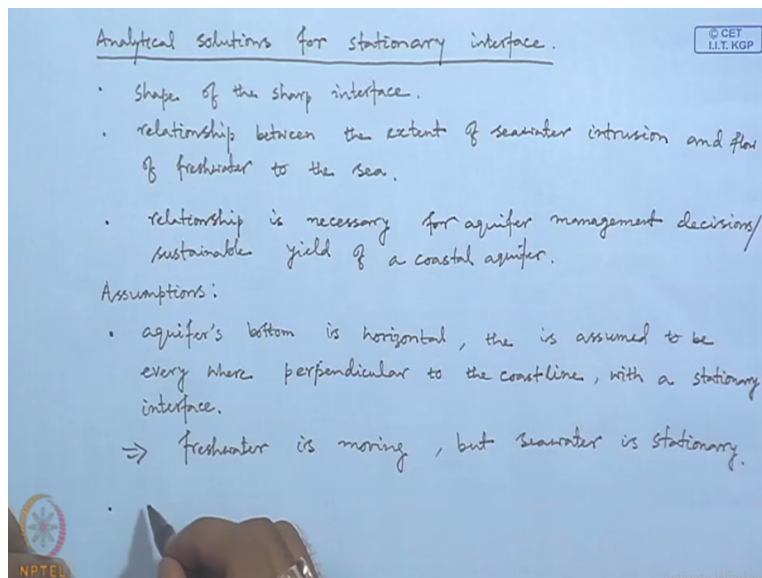 Analytical solutions for stationary interface.
© CET
I.I.T. KGP
• Shape of the sharp interface.
• relationship between the extent of seawater intrusion and flow
of freshwater to the sea.
• relationship is necessary for aquifer management decisions/
sustainable yield of a coastal aquifer.
Assumptions:
• aquifer's bottom is horizontal, the is assumed to be
every where perpendicular to the coastline, with a stationary
interface.
⇒ freshwater is moving, but seawater is stationary.
•
NPTEL